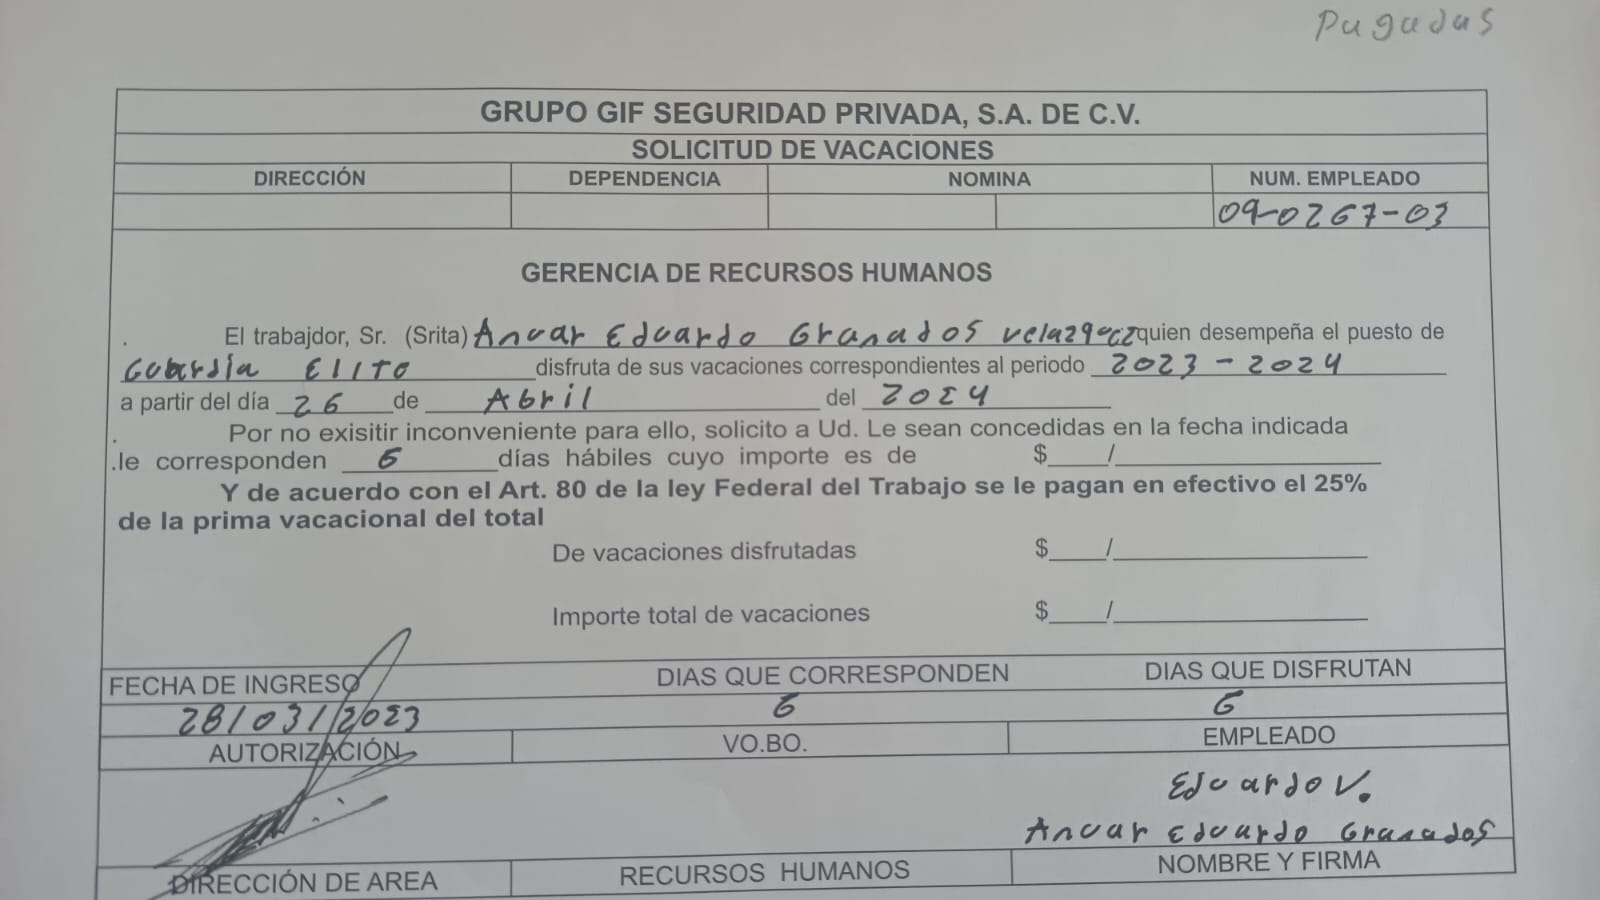 Pagadas
GRUPO GIF SEGURIDAD PRIVADA, S.A. DE C.V.
SOLICITUD DE VACACIONES
DIRECCIÓN DEPENDENCIA NOMINA NUM. EMPLEADO
09-0267-03
GERENCIA DE RECURSOS HUMANOS
. El trabajdor, Sr. (Srita) Anuar Eduardo Granados Velazquez quien desempeña el puesto de
Guardia Elite disfruta de sus vacaciones correspondientes al periodo 2023 - 2024
a partir del día 26 de Abril del 2024
. Por no exisitir inconveniente para ello, solicito a Ud. Le sean concedidas en la fecha indicada
.le corresponden 6 días hábiles cuyo importe es de $____/____
Y de acuerdo con el Art. 80 de la ley Federal del Trabajo se le pagan en efectivo el 25%
de la prima vacacional del total
De vacaciones disfrutadas $____/____
Importe total de vacaciones $____/____
FECHA DE INGRESO DIAS QUE CORRESPONDEN DIAS QUE DISFRUTAN
28/03/2023 6 6
AUTORIZACIÓN VO.BO. EMPLEADO
Eduardo V.
Anuar Eduardo Granados
DIRECCIÓN DE AREA RECURSOS HUMANOS NOMBRE Y FIRMA